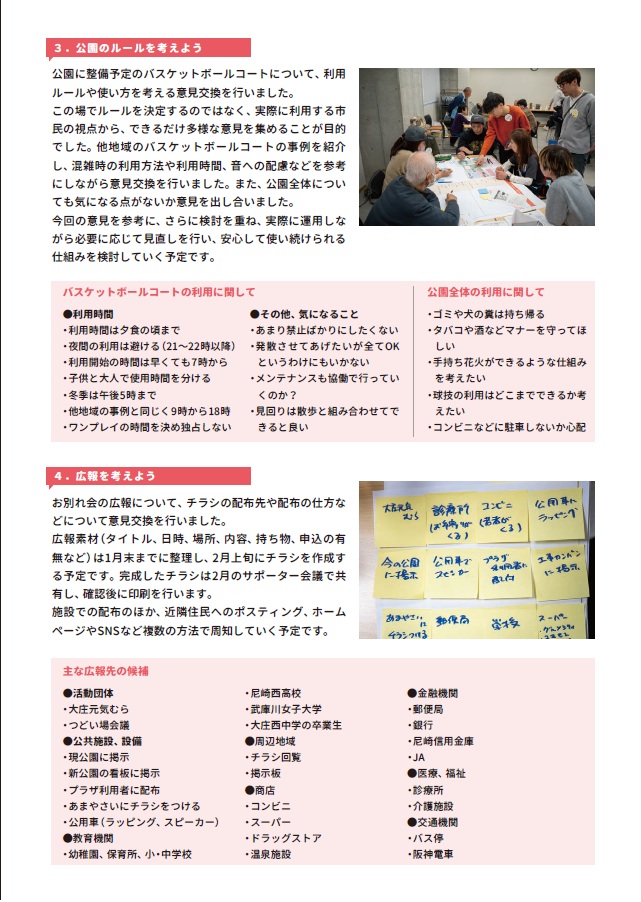 ３．公園のルールを考えよう
公園に整備予定のバスケットボールコートについて、利用
ルールや使い方を考える意見交換を行いました。
この場でルールを決定するのではなく、実際に利用する市
民の視点から、できるだけ多様な意見を集めることが目的
でした。他地域のバスケットボールコートの事例を紹介
し、混雑時の利用方法や利用時間、音への配慮などを参考
にしながら意見交換を行いました。また、公園全体につい
ても気になる点がないか意見を出し合いました。
今回の意見を参考に、さらに検討を重ね、実際に運用しな
がら必要に応じて見直しを行い、安心して使い続けられる
仕組みを検討していく予定です。
バスケットボールコートの利用に関して
●利用時間
・利用時間は夕食の頃まで
・夜間の利用は避ける（21～22時以降）
・利用開始の時間は早くても7時から
・子供と大人で使用時間を分ける
・冬季は午後5時まで
・他地域の事例と同じく9時から18時
・ワンプレイの時間を決め独占しない
●その他、気になること
・あまり禁止ばかりにしたくない
・発散させてあげたいが全てOK
というわけにもいかない
・メンテナンスも協働で行ってい
くのか？
・見回りは散歩と組み合わせてで
きると良い
公園全体の利用に関して
・ゴミや犬の糞は持ち帰る
・タバコや酒などマナーを守ってほ
しい
・手持ち花火ができるような仕組み
を考えたい
・球技の利用はどこまでできるか考
えたい
・コンビニなどに駐車しないか心配
４．広報を考えよう
お別れ会の広報について、チラシの配布先や配布の仕方な
どについて意見交換を行いました。
広報素材（タイトル、日時、場所、内容、持ち物、申込の有
無など）は1月末までに整理し、2月上旬にチラシを作成す
る予定です。完成したチラシは2月のサポーター会議で共
有し、確認後に印刷を行います。
施設での配布のほか、近隣住民へのポスティング、ホーム
ページやSNSなど複数の方法で周知していく予定です。
大庄元気
むら
診療所
(お年寄りが
くる)
コンビニ
(若者が
くる)
公用車に
ラッピング
今の公園
に掲示
公用車で
スピーカー
プラザ
利用者に
配布
工事カンバン
に掲示
あまやさいに
チラシつける
郵便局
学校
スーパー
主な広報先の候補
●活動団体
・大庄元気むら
・つどい場会議
●公共施設、設備
・現公園に掲示
・新公園の看板に掲示
・プラザ利用者に配布
・あまやさいにチラシをつける
・公用車（ラッピング、スピーカー）
●教育機関
・幼稚園、保育所、小・中学校
・尼崎西高校
・武庫川女子大学
・大庄西中学の卒業生
●周辺地域
・チラシ回覧
・掲示板
●商店
・コンビニ
・スーパー
・ドラッグストア
・温泉施設
●金融機関
・郵便局
・銀行
・尼崎信用金庫
・JA
●医療、福祉
・診療所
・介護施設
●交通機関
・バス停
・阪神電車